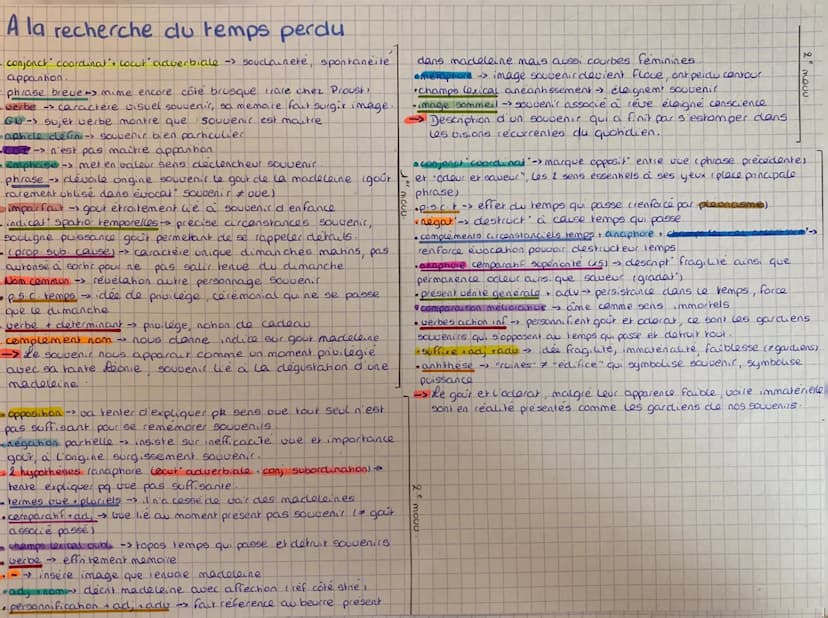 A la recherche du temps perdu
• conjonct° coordinat° + locut° adverbiale → soudaineté, spontanéité
apparition.
phrase brève → mime encore côté brusque (rare chez Proust)
• verbe → caractère visuel souvenir, sa mémoire fait surgir image
→ sujet verbe montre que souvenir est maître
• article défini → souvenir bien particulier
→ n'est pas maître apparition
• emphase → met en valeur sens déclencheur souvenir
phrase → dévoile origine souvenir le goût de la madeleine (goût
rarement utilisé dans évocat° souvenir ≠ vue)
• imparfait → goût étroitement lié à souvenir d'enfance
• indicat° spatio temporelles → précise circonstances souvenir,
souligne puissance goût permettant de se rappeler détails.
• (prop sub cause) → caractère unique dimanches matins, pas
autorisé à sortir pour ne pas salir tenue du dimanche
Nom commun → révélation autre personnage souvenir
• p.s.c temps → idée de privilège, cérémonial qui ne se passe
que le dimanche
• verbe + déterminant → privilège, notion de cadeau
complément nom → nous donne indice sur goût madeleine
→ Le souvenir nous apparaît comme un moment privilégié
avec sa tante Léonie, souvenir lié à la dégustation d'une
madeleine.
1er mouv
• opposition → va tenter d'expliquer pk sens vue tout seul n'est
pas suffisant pour se remémorer souvenirs
• négation partielle → insiste sur inefficacité vue et importance
goût, à l'origine surgissement souvenir.
• 2 hypothèses (anaphore locut° adverbiale + conj subordination) →
tente expliquer pq vue pas suffisante.
• termes vue + pluriels → il n'a cessé de voir des madeleines
• comparatif + adj → vue lié au moment présent pas souvenir (≠ goût
associé passé)
• champs lexical oubli → topos temps qui passe et détruit souvenirs
• verbe → effritement mémoire
• - → insère image que renvoie madeleine
• adj + nom → décrit madeleine avec affection (réf côté strié)
• personnification + adj + adv → fait référence au beurre présent
2e mouv
dans madeleine mais aussi courbes féminines.
• métaphore → image souvenir devient floue, ont perdu contour
• champs lexical anéantissement → éloignemt souvenir
• image sommeil → souvenir associé à rêve éloigné conscience
→ Description d'un souvenir qui a finit par s'estomper dans
les visions récurrentes du quotidien.
2e mouv
• conjonct° coordinat° → marque opposit° entre vue (phrase précédente)
et "odeur et saveur", les 2 sens essentiels à ses yeux (place principale
phrase)
• p.s.c.t → effet du temps qui passe (renforcé par pléonasme)
• négat° → destruct° à cause temps qui passe
• compléments circonstanciels temps + anaphore +
renforce évocation pouvoir destructeur temps
• anaphore comparatif supériorité (x5) → descript° fragilité ainsi que
permanence odeur ainsi que saveur (gradat°)
• présent vérité générale + adv → persistance dans le temps, force
• comparaison méliorative → âme comme sens immortels
• verbes action inf → personnifient goût et odorat, ce sont les gardiens
souvenirs qui s'opposent au temps qui passe et détruit tout.
• suffixe + adj + adv → idée fragilité, immatérialité, faiblesse (≠ gardiens)
• antithèse → "ruines" ≠ "édifice" qui symbolise souvenir, symbolise
puissance
→ Le goût et l'odorat, malgré leur apparence faible, voire immatérielle
sont en réalité présentés comme les gardiens de nos souvenirs.